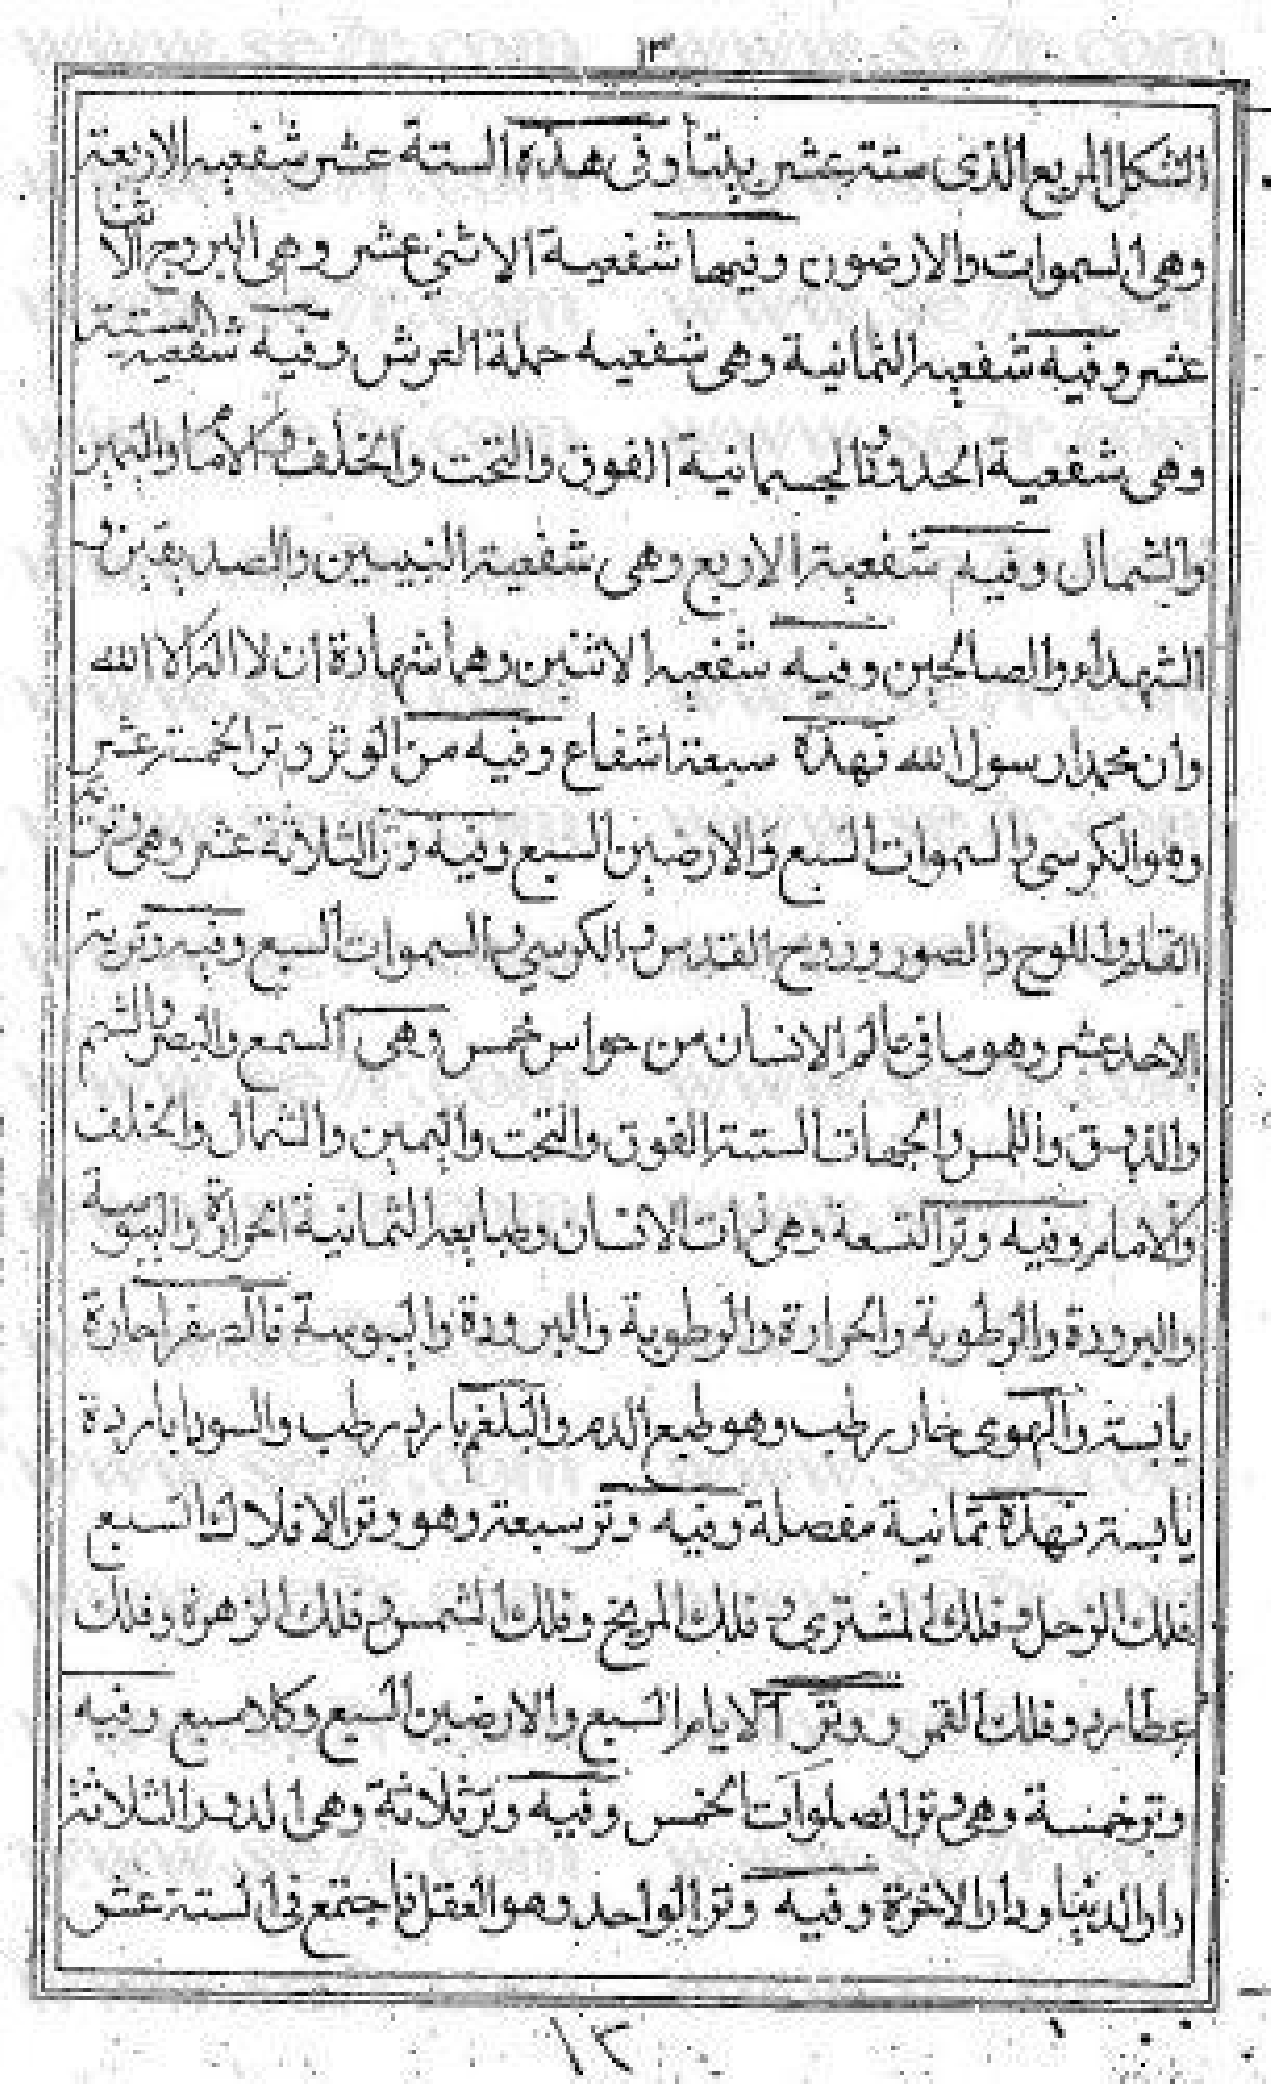 ١٣
الشكل المربع الذى ستة عشر بيتا وفى هذه الستة عشر شفعيه الاربعة
وهى السموات والارضون وفيها شفعية الاثني عشر وهى البروج الاثنا
عشر وفيه شفعيه الثمانية وهى شفعيه حملة العرش وفيه شفعية الستة
وهى شفعية الجسمانية الفوق والتحت والخلف والامام واليمين
والشمال وفيه شفعية الاربع وهى شفعية النبيين والصديقين و
الشهداء والصالحين وفيه شفعيه الاثنين وهما شهادة ان لا اله الا الله
وان محمدا رسول الله فهذه سبعة اشفاع وفيه من الوتر وتر الخمسة عشر
وهو الكرسى والسموات السبع والارضين السبع وفيه وتر الثلاثة عشر وهى
القلم واللوح والصور وروح القدس والكرسي والسموات السبع وفيه وترية
الاحد عشر وهو ما فى عالم الانسان من حواس خمس وهى السمع والبصر والشم
والذوق واللمس والجهات الستة الفوق والتحت واليمين والشمال والخلف
والامام وفيه وتر التسعة وهى ذات الانسان وطبايعه الثمانية الحرارة واليبوسة
والبرودة والرطوبة والحرارة والرطوبة والبرودة واليبوسة فالصفرا حارة
يابسة والهوى حار رطب وهو طبع الدم والبلغم بارد رطب والسودا باردة
يابسة فهذه ثمانية مفصلة وفيه وتر سبعة وهو وتر الافلاك السبع
فلك الزحل وفلك المشترى وفلك المريخ وفلك الشمس وفلك الزهرة وفلك
عطارد وفلك القمر ووتر الايام السبع والارضين السبع وكلا سبع وفيه
وتر خمسة وهى وتر الصلوات الخمس وفيه وتر ثلاثة وهى الثلاثة
دار الدنيا ودار الاخرة وفيه وتر الواحد وهو العقل فاجتمع فى الستة عشر
١٣